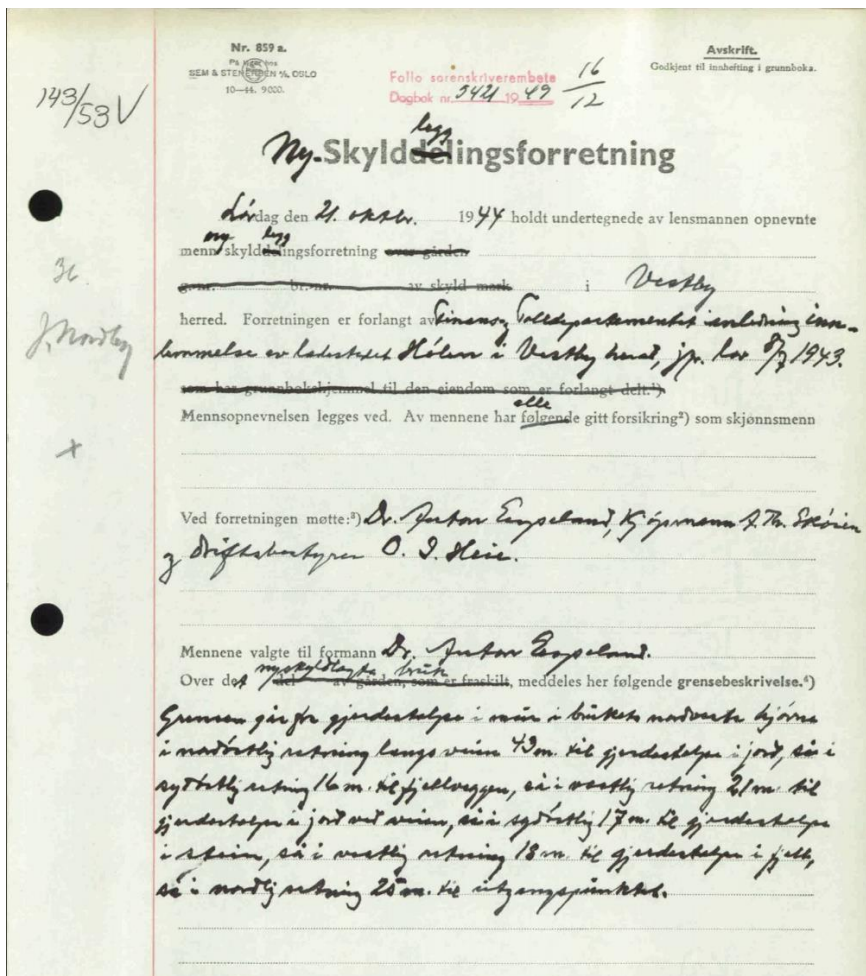 Nr. 859 a.
SEM & STENERSEN A/S, OSLO
10—44. 9000.
Avskrift.
Godkjent til innhefting i grunnboka.
Follo sorenskriverembete
Dagbok nr. 5421 19 49 16/12
143/53 V
legg
Ny-Skylddelingsforretning
Lørdag den 21. oktbr. 1944 holdt undertegnede av lensmannen opnevnte
ny- legg
menn skylddelingsforretning over gården
gnr. br.nr. av skyld mark i Vestby
herred. Forretningen er forlangt av Finans og Tolldepartementet i anledning inn-
lemmelse av ladestedet Hölen i Vestby herad, jfr. lov 8/7 1943.
som har grunnbokshjemmel til den eiendom som er forlangt delt.¹)
alle
Mennsopnevnelsen legges ved. Av mennene har følgende gitt forsikring²) som skjønnsmenn
Ved forretningen møtte:³) Dr. Anton Espeland, kjöpmann
og driftsbestyrer O. J. Heie.
Mennene valgte til formann Dr. Anton Espeland.
nyskyldlagte bruk
Over det del av gården, som er fraskilt, meddeles her følgende grensebeskrivelse.⁴)
Grensen går fra gjerdestolpe i mur i brukets nordvestre hjörne
i nordöstlig retning langs veien 43 m. til gjerdestolpe i jord, så i
sydöstlig retning 16 m. til fjellveggen, så i vestlig retning 21 m. til
gjerdestolpe i jord ved veien, så i sydöstlig 17 m. til gjerdestolpe
i stein, så i vestlig retning 18 m. til gjerdestolpe i fjell,
så i nordlig retning 25 m. til utgangspunktet.